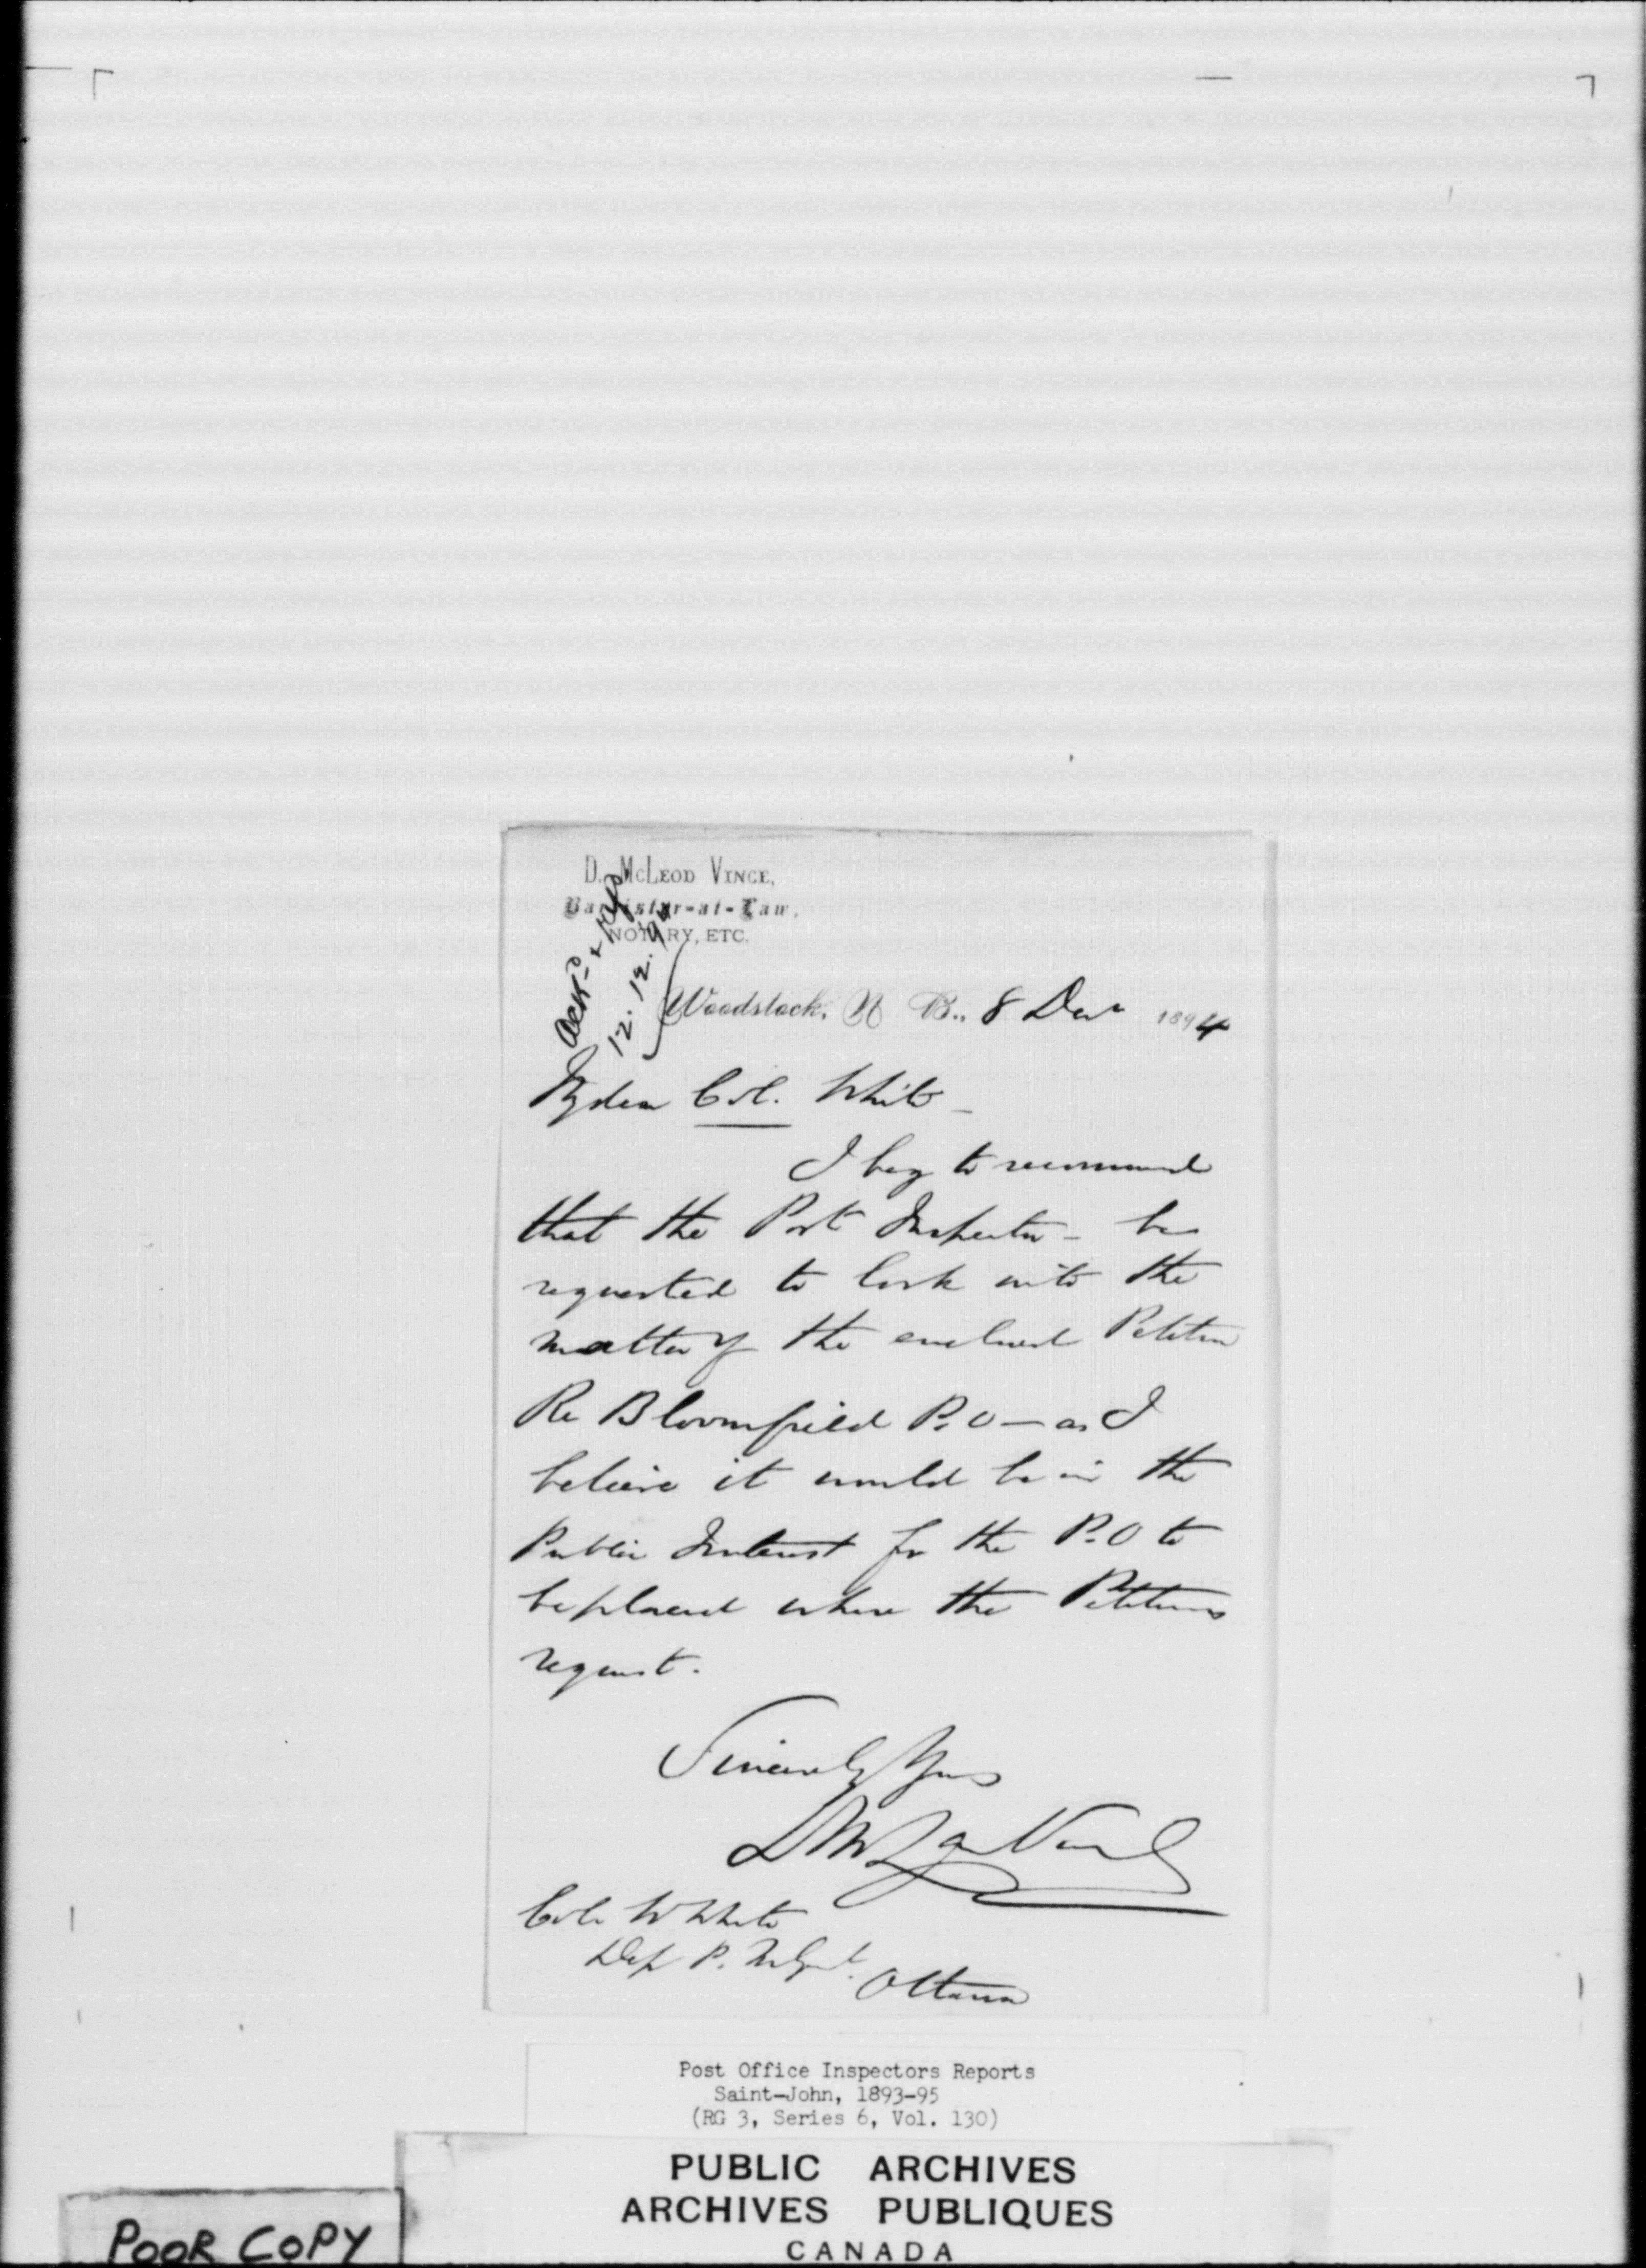 D. McLeod Vince,
Barrister-at-Law,
NOTARY, ETC.
Ackd &
12.12.94
Woodstock, N. B., 8 Decr 1894
My dear Col. White -
I beg to recommend
that the Post Inspector - be
requested to look into the
matter of the enclosed Petition
Re Bloomfield P.O - as I
believe it would be in the
Public Interest for the P.O to
be placed where the Petitioners
request.
Sincerely Yours
D McLeod Vince
Col. White
Dep P. M Genl.
Ottawa
Post Office Inspectors Reports
Saint-John, 1893-95
(RG 3, Series 6, Vol. 130)
PUBLIC ARCHIVES
ARCHIVES PUBLIQUES
CANADA
POOR COPY